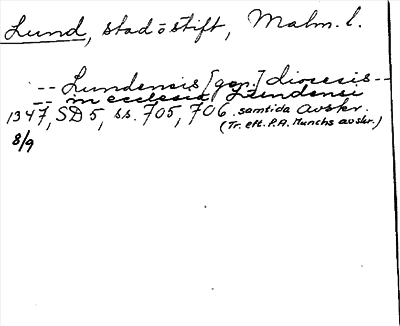 Lund, stad o stift, Malm. l.
-- Lundensis [gen.] diocesis --
-- in ecclesia Lundensi
1347, SD 5, ss. 705, 706. samtida avskr.
8/9 (Tr. eft. P.A. Munchs avskr.)